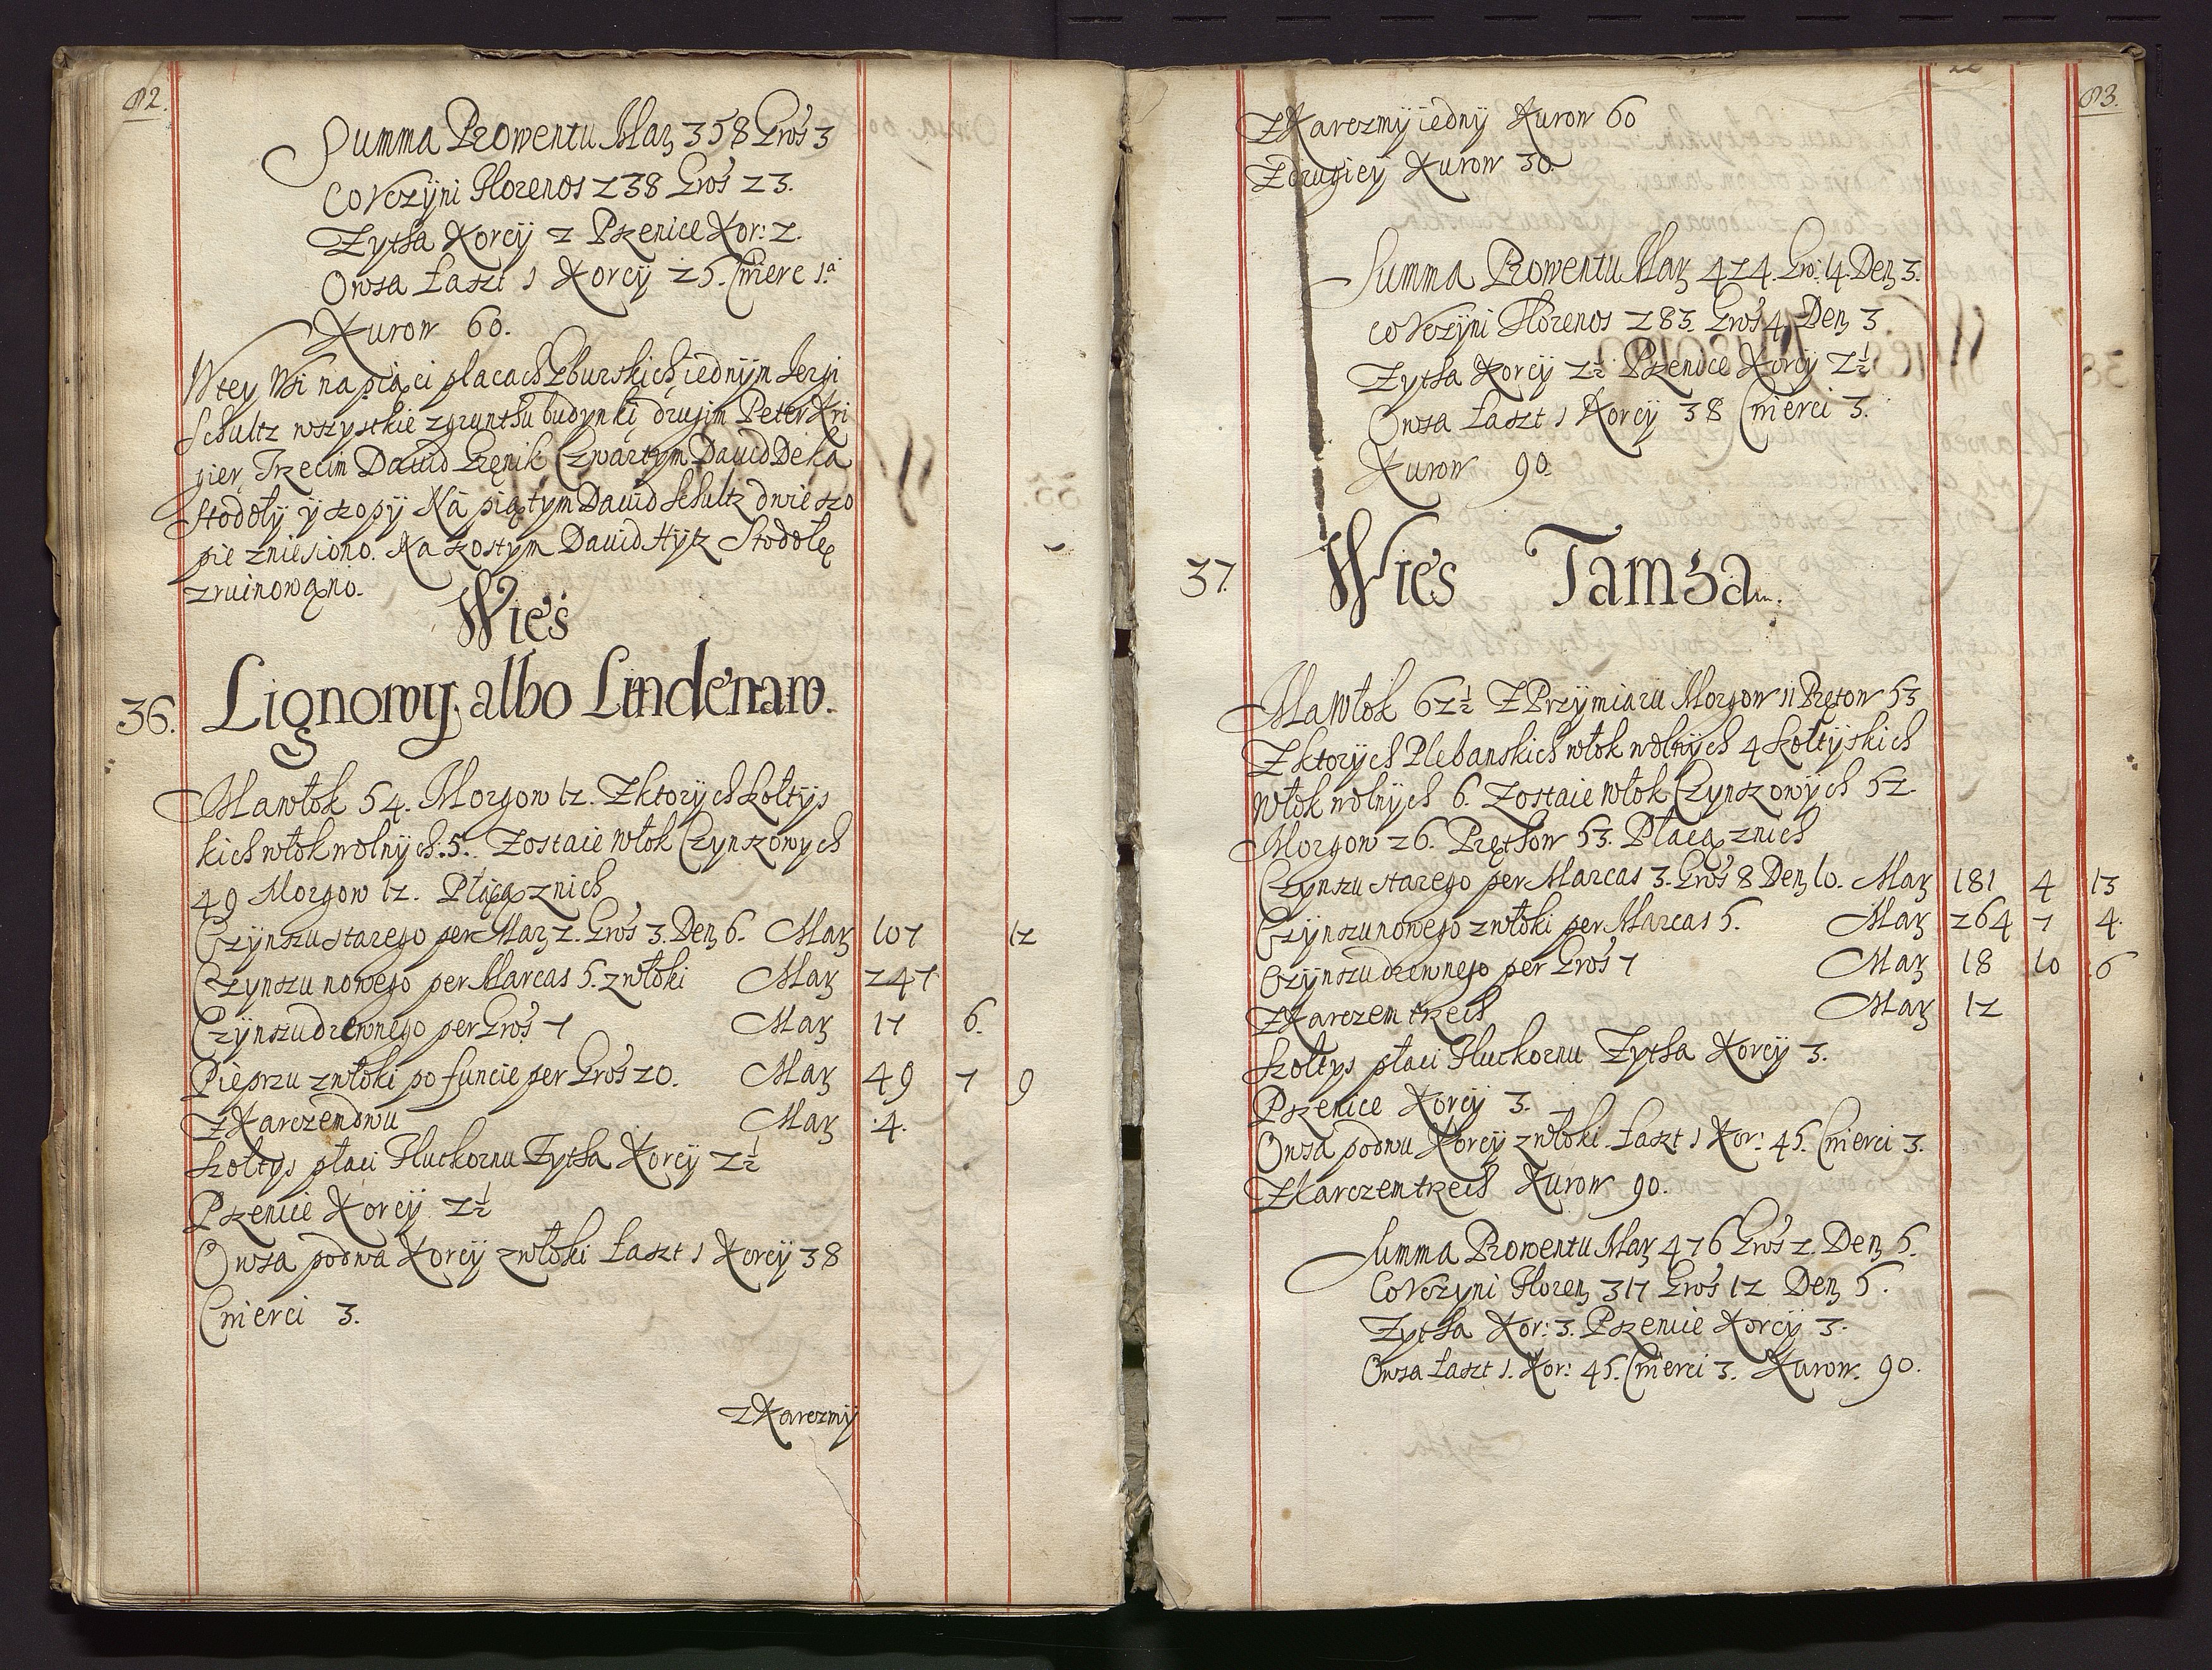 82.
Summa Prowentu Marz 358 Gros 3
Co Vczÿni Florenos 238 Gros 23.
Zytha Korcÿ 2 Pszenice Kor: 2.
Owsa Łaszt 1 Korcÿ 25. Cwierc 1.a
Kurow 60.
W tey Wsi na piąci placach Zburskich iednÿm Jerzi
Schultz wszystkie z grunthu budynki drugim Peter Kri
gier, Trzecim Dawid Gręnik Czwartym Dawid Deka
Stodołÿ ÿ szopÿ Na piątym Dawid Schultz dwie szo
pie zniesiono. Na szostym Dawid Hÿtz Stodołę
zruinowąno.
Wieś
36. Lignowy albo Lindenaw.
Ma włok 54. Morgow 12. Z ktorych Szołtÿs
kich włok wolnÿch. 5. Zostaie włok Czynszowych
49 Morgow 12. Płącą z nich
Czÿnszu starego per Marz 2. Gros 3. Denz 6. Marz 107 12
Czynszu nowego per Marcas 5. z włoki Marz 247
Czÿnszu drzewnego per Gros 7 Marz 17 6.
Pieprzu z włoki po funcie per Gros 20. Marz 49 7 9
Z Karczem dwu Marz 4.
Szołtys płaci Fluckornu Zytha Korcÿ 2½
Pszenice Korcÿ 2½
Owsa po dwa Korcÿ z włoki Łaszt 1 Korcÿ 38
Cwierci 3.
Z Karczmÿ
83.
Z Karczmÿ iednÿ Kurow 60
Z drugieÿ Kurow 30.
Summa Prowentu Marz 424. Gro: 4. Denz 3.
co Vczÿni Florenos 283. Gros 4, Denz 3
Zytha Korcÿ 2½ Pszenice Korcÿ 2½
Owsa Łaszt 1 Korcÿ 38 Cwierci 3.
Kurow 90.
37. Wies Tamsa.
Ma Włok 62½ Z Przymiaru Morgow 11 Prętow 53
Z ktorych Plebanskich włok wolnÿch 4 Szołtÿskich
Włok wolnÿch 6. Zostaie włok Czynszowych 52.
Morgow 26. Pręthow 53. Płacą z nich
Czynszu starego per Marcas 3. Gros 8 Denz 10. Marz 181 4 13
Czÿnszu nowego z włoki per Marcas 5. Marz 264 7 4.
Czÿnszu drzewnego per Gros 7 Marz 18 10 6
Z Karczem trzech Marz 12
Szołtys płaci Fluckornu Zytha Korcÿ 3.
Pszenice Korcÿ 3.
Owsa po dwu Korcÿ z włoki. Łaszt 1 Kor: 45. Cwierci 3.
Z Karczem trzech Kurow 90.
Summa Prowentu Marz 476 Gros 2. Denz 5.
Co Vczyni Florenz 317 Gros 12 Denz 5.
Zytha Kor: 3. Pszenice Korcÿ 3.
Owsa Łaszt 1. Kor: 45. Cwierci 3. Kurow 90.